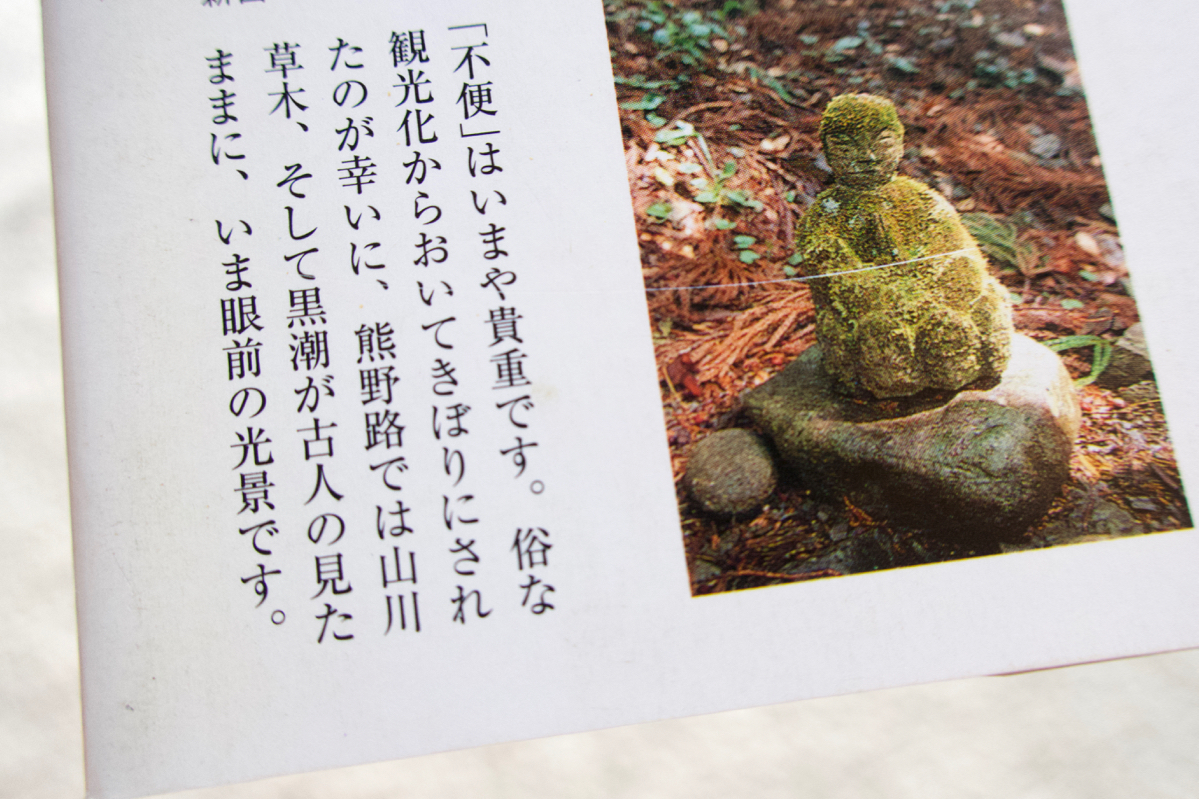 「不便」はいまや貴重です。俗な
観光化からおいてきぼりにされ
たのが幸いに、熊野路では山川
草木、そして黒潮が古人の見た
ままに、いま眼前の光景です。